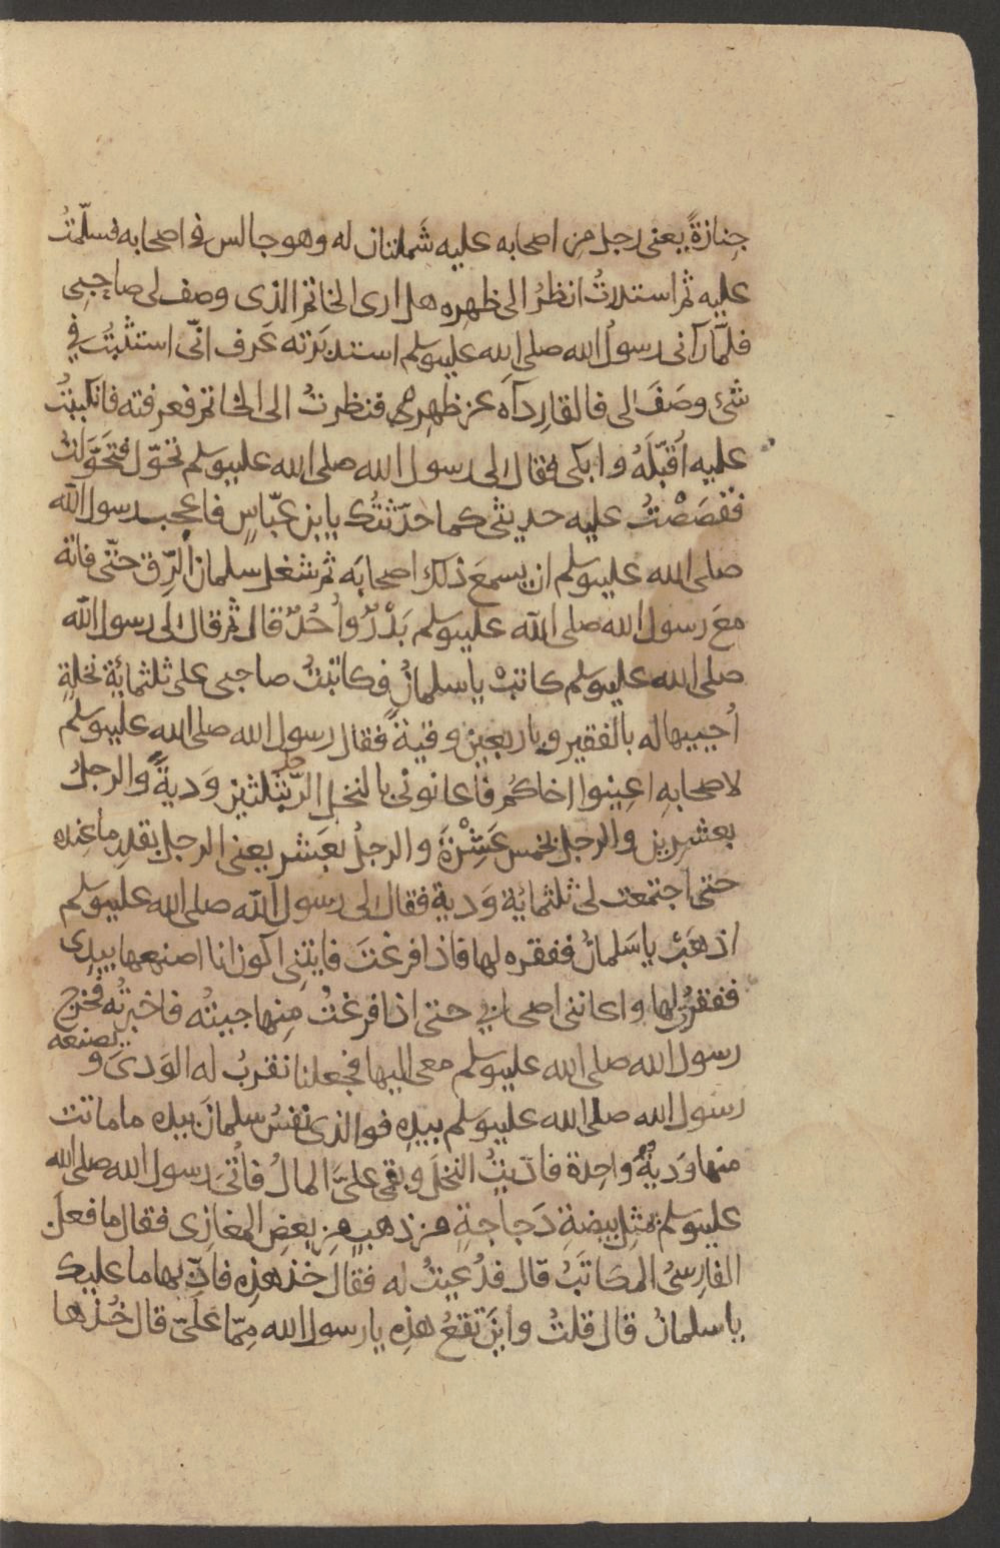 جِنازةً يعنى رجل من اصحابه عليه شَملتان له وهو جالس فى اصحابه فسلّمتُ
عليه ثم استدرتُ انظرُ الى ظهرِه هل ارى الخاتم الذى وصف لى صاحِبِى
فلمّا رآنى رسولُ الله صلى الله عليه وسلم استدبَرْتَه عَرف انّى استثبتُ فى
شئ وصَفَ لى قال فالقا رِدآه عن ظهرِه فنظرتُ الى الخاتم فعرفته فانكببتُ
عليه اُقبّلهُ وابكى فقال لى رسول الله صلى الله عليه وسلم تحوّل فتَحَوّلتُ
فقصَصْتُ عليه حديثى كما حدّثتُك يا بن عبّاسٍ فاعجب رسول الله
صلى الله عليه وسلم ان يسمعَ ذلك اصحابَه ثم شغل سلمانَ الرِّق حتّى فاته
معَ رسول الله صلى الله عليه وسلم بَدْرٌ واُحُدٌ قال ثم قال لى رسول الله
صلى الله عليه وسلم كاتبْ يا سلمانُ فكاتبتُ صاحبى على ثلثمائةِ نخلةٍ
اُحييها له بالفقير وباربعين وقيةً فقال رسول الله صلى الله عليه وسلم
لاصحابهِ اعِينوا اخاكُم فاعانونى بالنخل الرّجل بثلثين وَديةً والرجلُ
بعشرين والرجل بخمس عَشْرَةَ والرجلُ بعَشر يعنى الرجل بقدرِ ما عنده
حتى اجتمعت لى ثلثمائة وَدية فقال لى رسول الله صلى الله عليه وسلم
اذهَبْ يا سَلمانُ ففقره لها فاذا فرغتَ فايتنِى اكون انا اصنعها بيدِى
ففقرتُ لها واعاننى اصحابى حتى اذا فرغتُ مِنها جيتُه فاخبرتُه فخرج
رسول الله صلى الله عليه وسلم معى اليها فجعلنا نقربُ له الوَدىَ و يصنعه
رسول الله صلى الله عليه وسلم بيدِهِ فوالذى نفسُ سلمانَ بيده ما ماتت
منها وَديةٌ واحِدة فادّيتُ النخلَ وبقى علىَّ المالُ فاُتى رسول الله صلى الله
عليه وسلم بمثلِ بيضةِ دَجاجةٍ من ذهبٍ من بعضِ المغازِى فقال ما فعل
الفارِسىُ المكاتَبُ قال فدُعيتُ له فقال خذ هذِه فادّ بها ما عليك
يا سلمانُ قال قلتُ واين تقعُ هذِه يا رسول الله مِمّا عَلَىّ قال خُذها